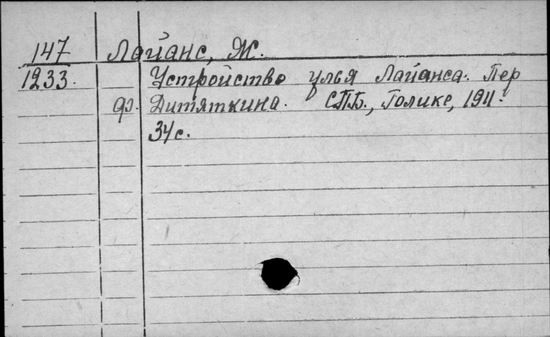 147 Лайанс, Ж.
1233. Устройство улья Лайанса. Пер
ф. Дитяткина. СПБ., Голике, 1911.
34с.